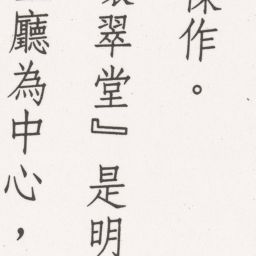 作。
翠堂』是明
廳為中心，